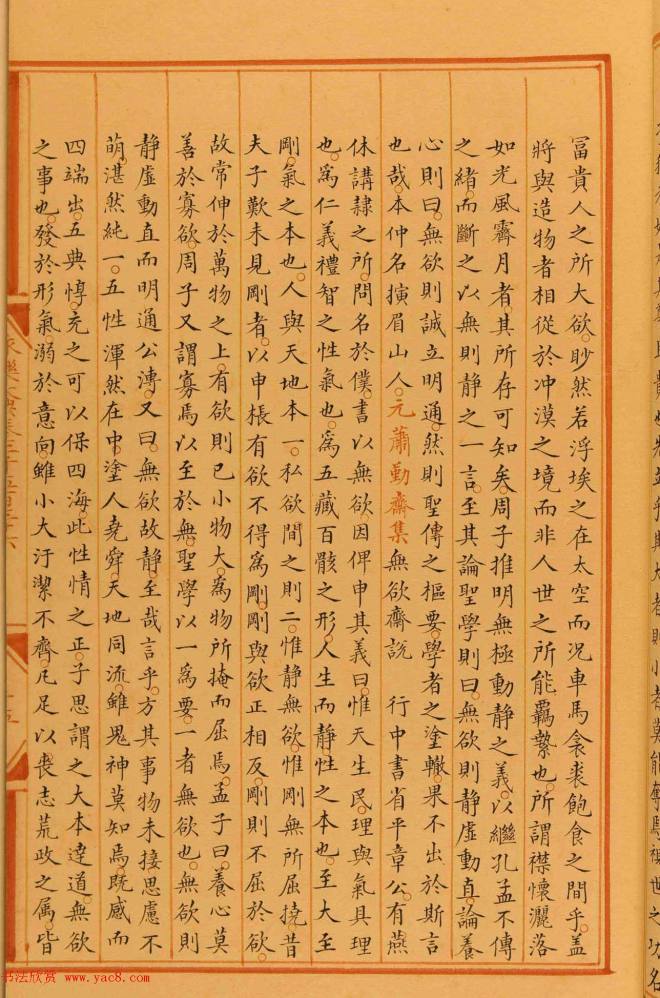 富貴人之所大欲眇然若浮埃之在太空而况車馬衾裘飽食之間乎蓋
將與造物者相從於冲漠之境而非人世之所能羈縶也所謂襟懷灑落
如光風霽月者其所存可知矣周子推明無極動静之義以繼孔孟不傳
之緒而斷之以無則静之一言至其論聖學則曰無欲則静虚動直論養
心則曰無欲則誠立明通然則聖傳之樞要學者之塗轍果不出於斯言
也哉本仲名演眉山人元蕭勤齋集無欲齋説 行中書省平章公有燕
休講隷之所問名於僕書以無欲因俾申其義曰惟天生民理與氣具理
也為仁義禮智之性氣也為五藏百骸之形人生而静性之本也至大至
剛氣之本也人與天地本一私欲間之則二惟静無欲惟剛無所屈撓昔
夫子歎未見剛者以申棖有欲不得為剛剛與欲正相反剛則不屈於欲
故常伸於萬物之上有欲則已小物大為物所掩而屈焉孟子曰養心莫
善於寡欲周子又謂寡焉以至於無聖學以一為要一者無欲也無欲則
静虚動直而明通公溥又曰無欲故静至哉言乎方其事物未接思慮不
萌湛然純一五性渾然在中塗人堯舜天地同流雖鬼神莫知焉既感而
四端出五典惇充之可以保四海此性情之正子思謂之大本達道無欲
之事也發於形氣溺於意向雖小大汙潔不齊凡足以喪志荒政之属皆
书法欣赏 www.yac8.com